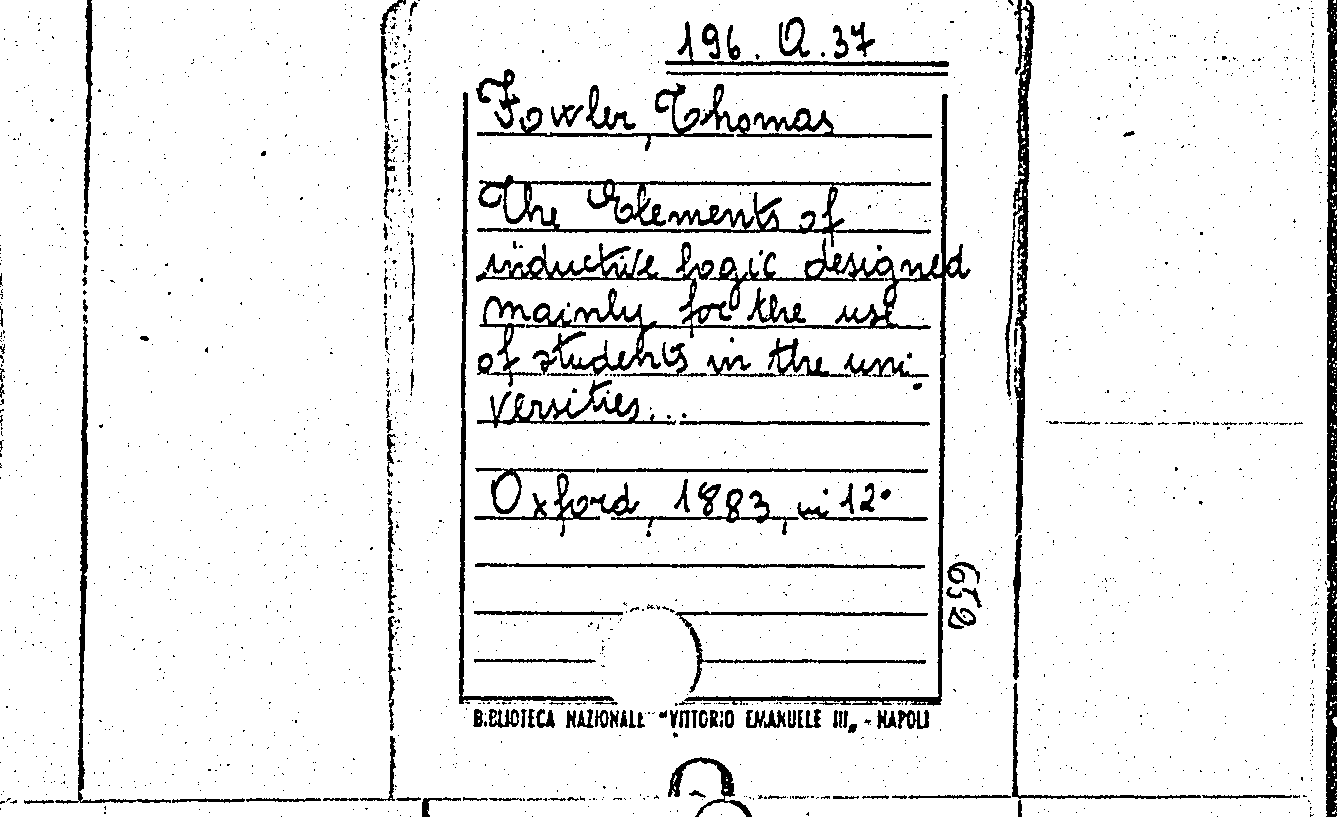 196. Q. 37
Fowler, Thomas
The Elements of
inductive logic designed
mainly for the use
of students in the uni-
versities...
Oxford, 1883, in 12°
652
BIBLIOTECA NAZIONALE "VITTORIO EMANUELE III" - NAPOLI